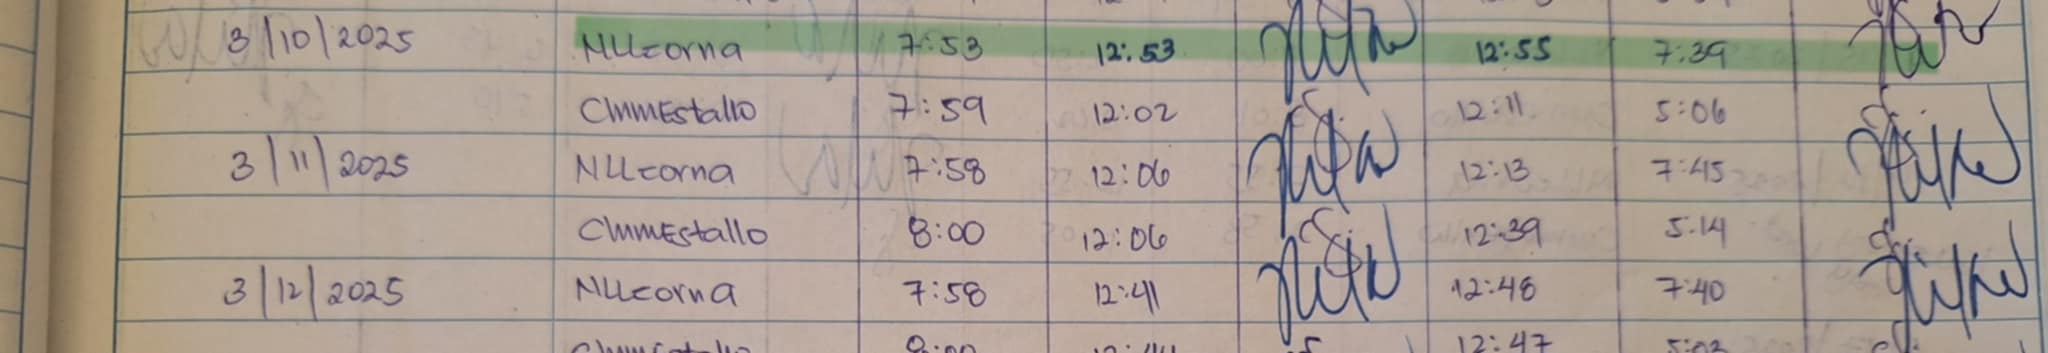 3/10/2025 NLLcorna 7:53 12:53 12:55 7:39
CMMEstallo 7:59 12:02 12:11 5:06
3/11/2025 NLLcorna 7:58 12:06 12:13 7:45
CMMEstallo 8:00 12:06 12:39 5:14
3/12/2025 NLLcorna 7:58 12:41 12:48 7:40
12:47 5:03